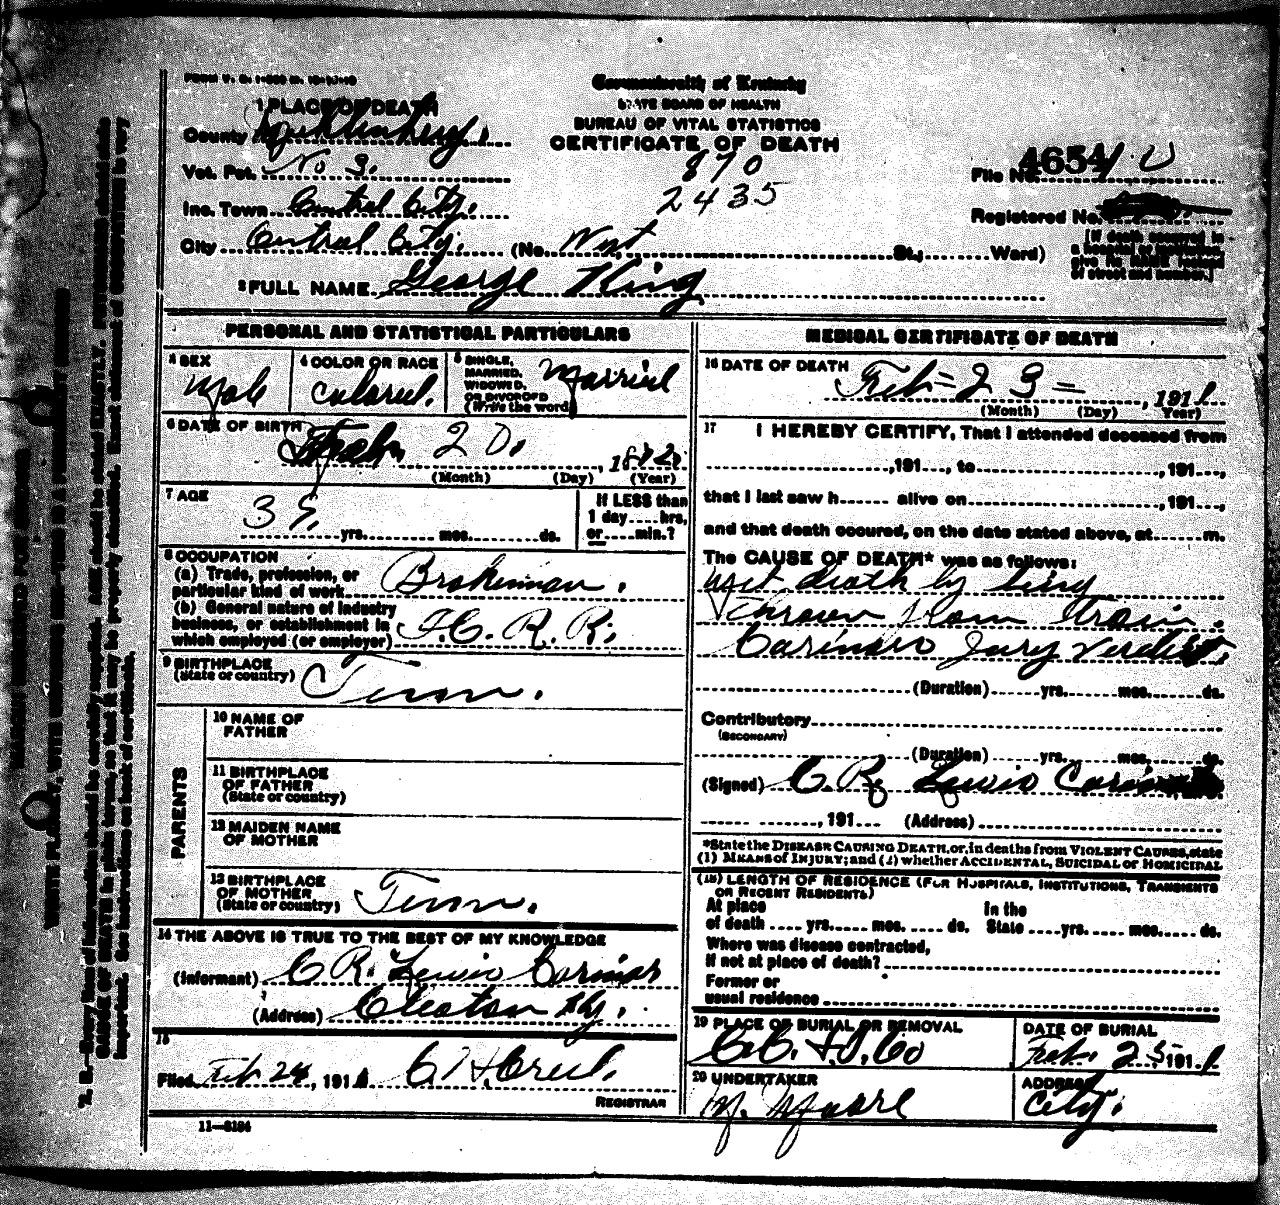 FORM V. S. 1-
Commonwealth of Kentucky
STATE BOARD OF HEALTH
BUREAU OF VITAL STATISTICS
CERTIFICATE OF DEATH
870
2435
1 PLACE OF DEATH
County Muhlenberg.
Vot. Pct. No 3.
Inc. Town Central City.
City Central City. (No. West St.; Ward)
File No. 4654
Registered No.
[If death occurred in a hospital or institution give its NAME instead of street and number.]
2 FULL NAME George King
PERSONAL AND STATISTICAL PARTICULARS
3 SEX
Male
4 COLOR OR RACE
Colored.
5 SINGLE, MARRIED, WIDOWED, OR DIVORCED (Write the word)
Married
6 DATE OF BIRTH
Feb. 20, 18
(Month) (Day) (Year)
7 AGE
yrs. mos. ds.
If LESS than 1 day hrs, or min.?
8 OCCUPATION
(a) Trade, profession, or particular kind of work Brakeman.
(b) General nature of industry business, or establishment in which employed (or employer) I. C. R. R.
9 BIRTHPLACE
(State or country) Tenn.
PARENTS
10 NAME OF FATHER
11 BIRTHPLACE OF FATHER (State or country)
12 MAIDEN NAME OF MOTHER
13 BIRTHPLACE OF MOTHER (State or country) Tenn.
14 THE ABOVE IS TRUE TO THE BEST OF MY KNOWLEDGE
(Informant) C R. Lewis Corinor
(Address) Cleaton Ky.
15
Filed Feb 24, 191
REGISTRAR
11-5184
MEDICAL CERTIFICATE OF DEATH
16 DATE OF DEATH
Feb = 23 = , 1911
(Month) (Day) Year)
17 I HEREBY CERTIFY, That I attended deceased from
,191 , to ,191 ,
that I last saw h alive on ,191 ,
and that death occured, on the date stated above, at m.
The CAUSE OF DEATH* was as follows:
met death by being
thrown from train.
Corinors Jury verdict.
(Duration) yrs. mos. ds.
Contributory
(SECONDARY)
(Duration) yrs. mos. ds.
(Signed) C R. Lewis Corinor
, 191 (Address)
*State the DISEASE CAUSING DEATH, or, in deaths from VIOLENT CAUSES, state
(1) MEANS of INJURY; and (2) whether ACCIDENTAL, SUICIDAL or HOMICIDAL
(18) LENGTH OF RESIDENCE (FOR HOSPITALS, INSTITUTIONS, TRANSIENTS
OR RECENT RESIDENTS)
At place of death yrs. mos. ds. In the State yrs. mos. ds.
Where was disease contracted,
if not at place of death?
Former or
usual residence
19 PLACE OF BURIAL OR REMOVAL
DATE OF BURIAL
Feb. 25 1911
20 UNDERTAKER
M. Moore
ADDRESS
City.
N. B.—Every item of information should be carefully supplied. AGE should be stated EXACTLY. PHYSICIANS should state
CAUSE OF DEATH in plain terms, so that it may be properly classified. Exact statement of OCCUPATION is very
important. See instructions on back of certificate.
WRITE PLAINLY, WITH UNFADING INK—THIS IS A PERMANENT RECORD
MARGIN RESERVED FOR BINDING